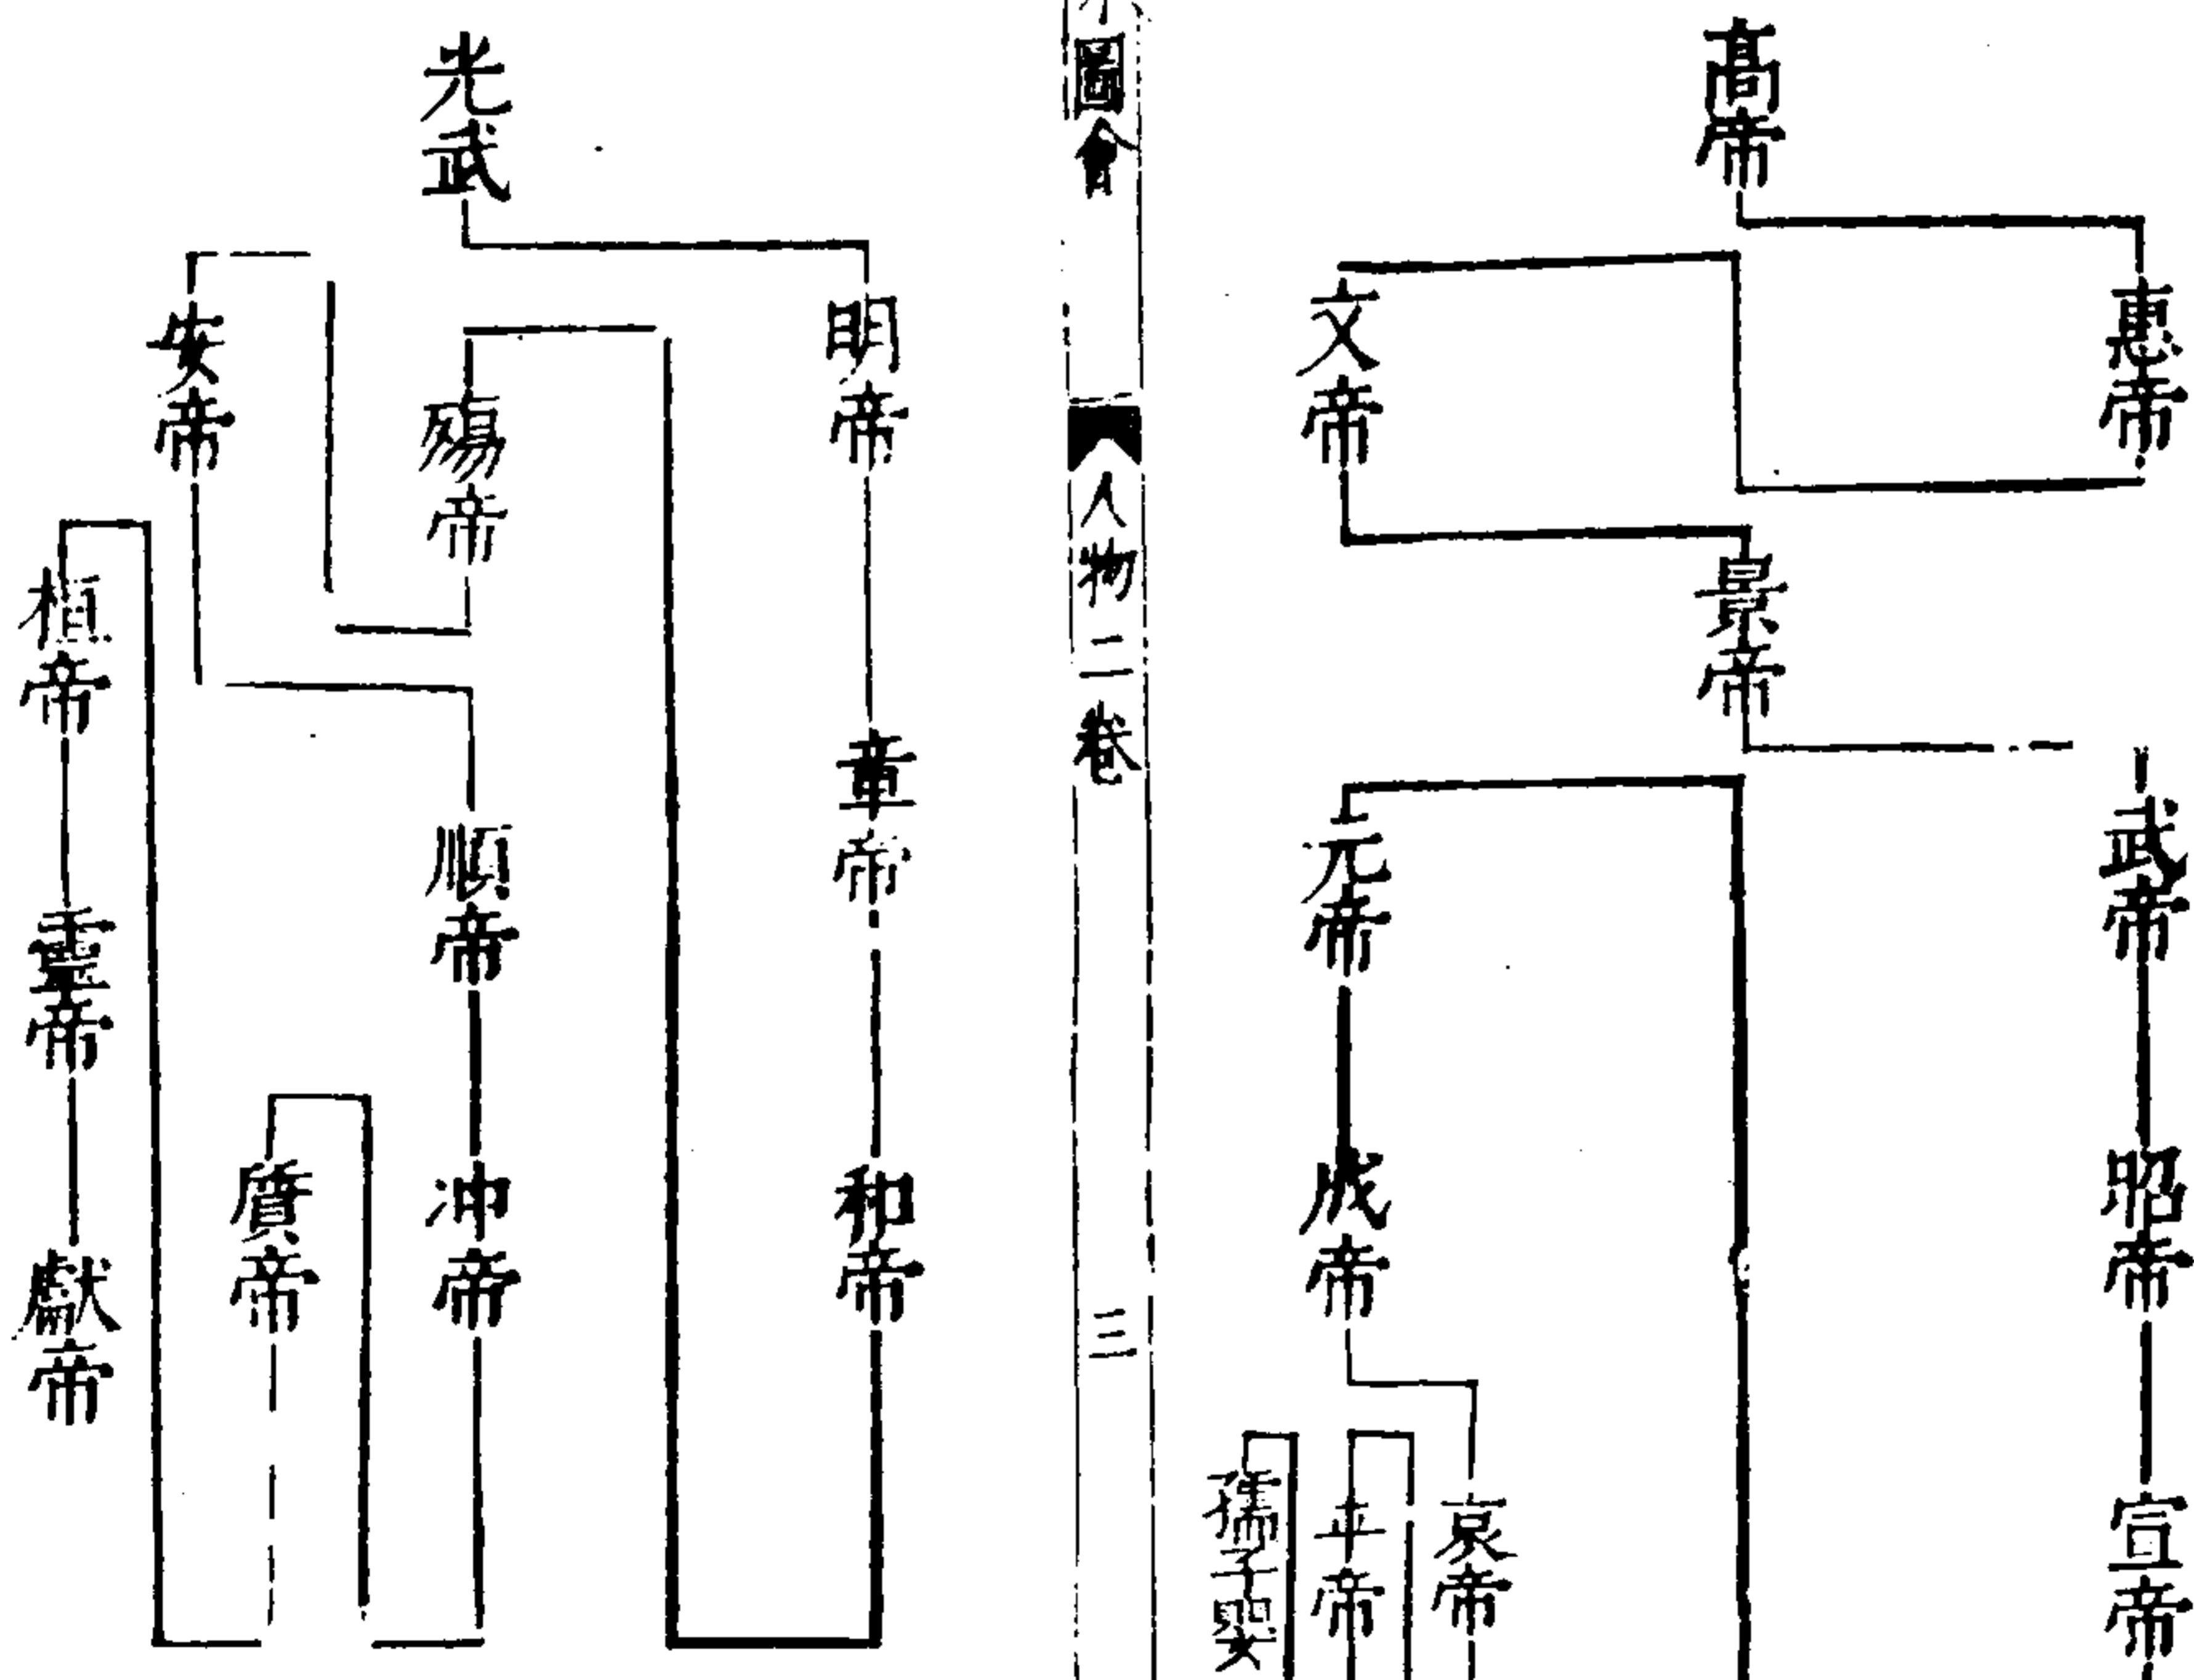 高帝
惠帝
文帝
景帝
武帝
昭帝
宣帝
元帝
成帝
哀帝
平帝
孺子嬰
圖會
人物二卷
三
光武
明帝
章帝
和帝
殤帝
安帝
順帝
冲帝
質帝
桓帝
靈帝
獻帝